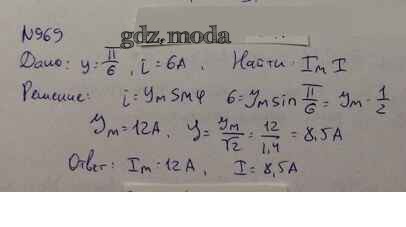 N969
gdz.moda
Дано: φ = π/6, i = 6А, Найти: Iм I
Решение: i = Yм Sinφ 6 = Yм sin π/6 = Yм · 1/2
Yм = 12А, Y = Yм/√2 = 12/1,4 = 8,5А
Ответ: Iм = 12А, I = 8,5А